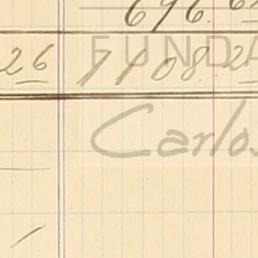 696.
26 1108.2
FUNDA
Carlos